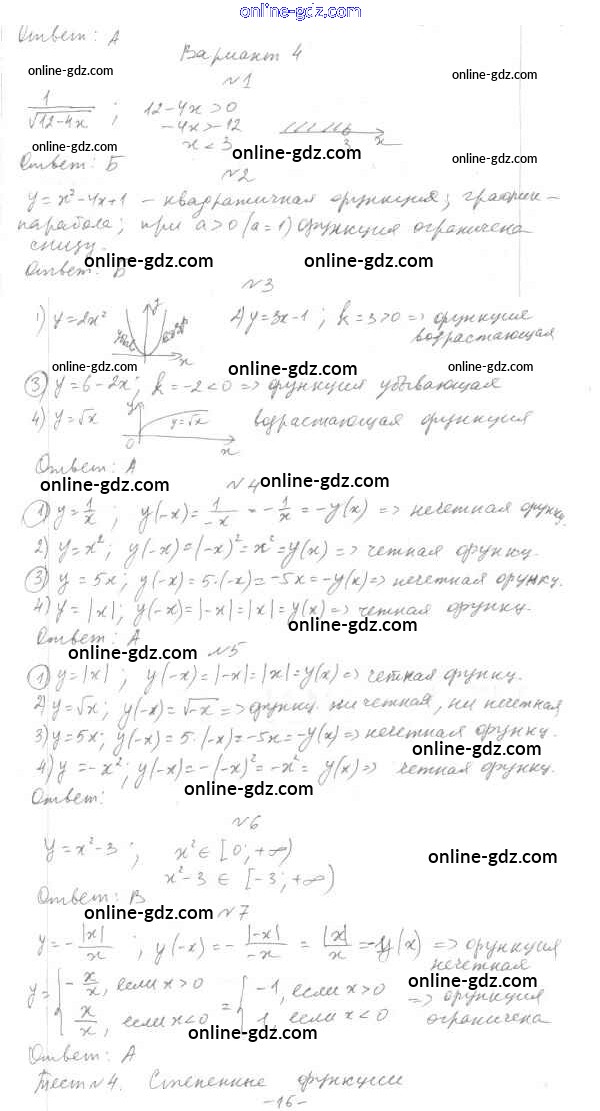 online-gdz.com
Ответ: А
Вариант 4
online-gdz.com
online-gdz.com
№1
1/√(12-4x) ; 12-4x>0
-4x>-12
x<3
3 x
online-gdz.com
online-gdz.com
Ответ: Б
№2
y=x²-4x+1 - квадратичная функция; график -
парабола; при a>0 (a=1) функция ограничена
снизу.
online-gdz.com
online-gdz.com
Ответ: В
№3
1) y=2x² y x 2) y=3x-1; k=3>0 => функция
возрастающая
online-gdz.com
online-gdz.com
online-gdz.com
3) y=6-2x; k=-2<0 => функция убывающая
4) y=√x y y=√x 0 x возрастающая функция
Ответ: А
online-gdz.com
online-gdz.com
№4
1) y=1/x ; y(-x)=1/-x = -1/x = -y(x) => нечетная функц.
2) y=x²; y(-x)=(-x)²=x²=y(x) => четная функц.
3) y=5x; y(-x)=5·(-x)=-5x=-y(x)=> нечетная функц.
4) y=|x|; y(-x)=|-x|=|x|=y(x)=> четная функц.
Ответ: А
online-gdz.com
online-gdz.com
№5
1) y=|x| ; y(-x)=|-x|=|x|=y(x)=> четная функц.
2) y=√x; y(-x)=√-x => функц. ни четная, ни нечетная
3) y=5x; y(-x)=5·(-x)=-5x=-y(x)=> нечетная функц.
online-gdz.com
4) y=-x²; y(-x)=-(-x)²=-x²= y(x)=> четная функц.
online-gdz.com
Ответ:
№6
y=x²-3 ; x²∈[0;+∞)
online-gdz.com
x²-3 ∈ [-3;+∞)
Ответ: В
online-gdz.com
№7
y=-|x|/x ; y(-x)=-|-x|/-x = |x|/x =-y(x) => функция
нечетная
online-gdz.com
y={-x/x, если x>0 = {-1, если x>0 => функция
x/x, если x<0 1, если x<0 ограничена
online-gdz.com
Ответ: А
Тест №4. Степенные функции
-16-